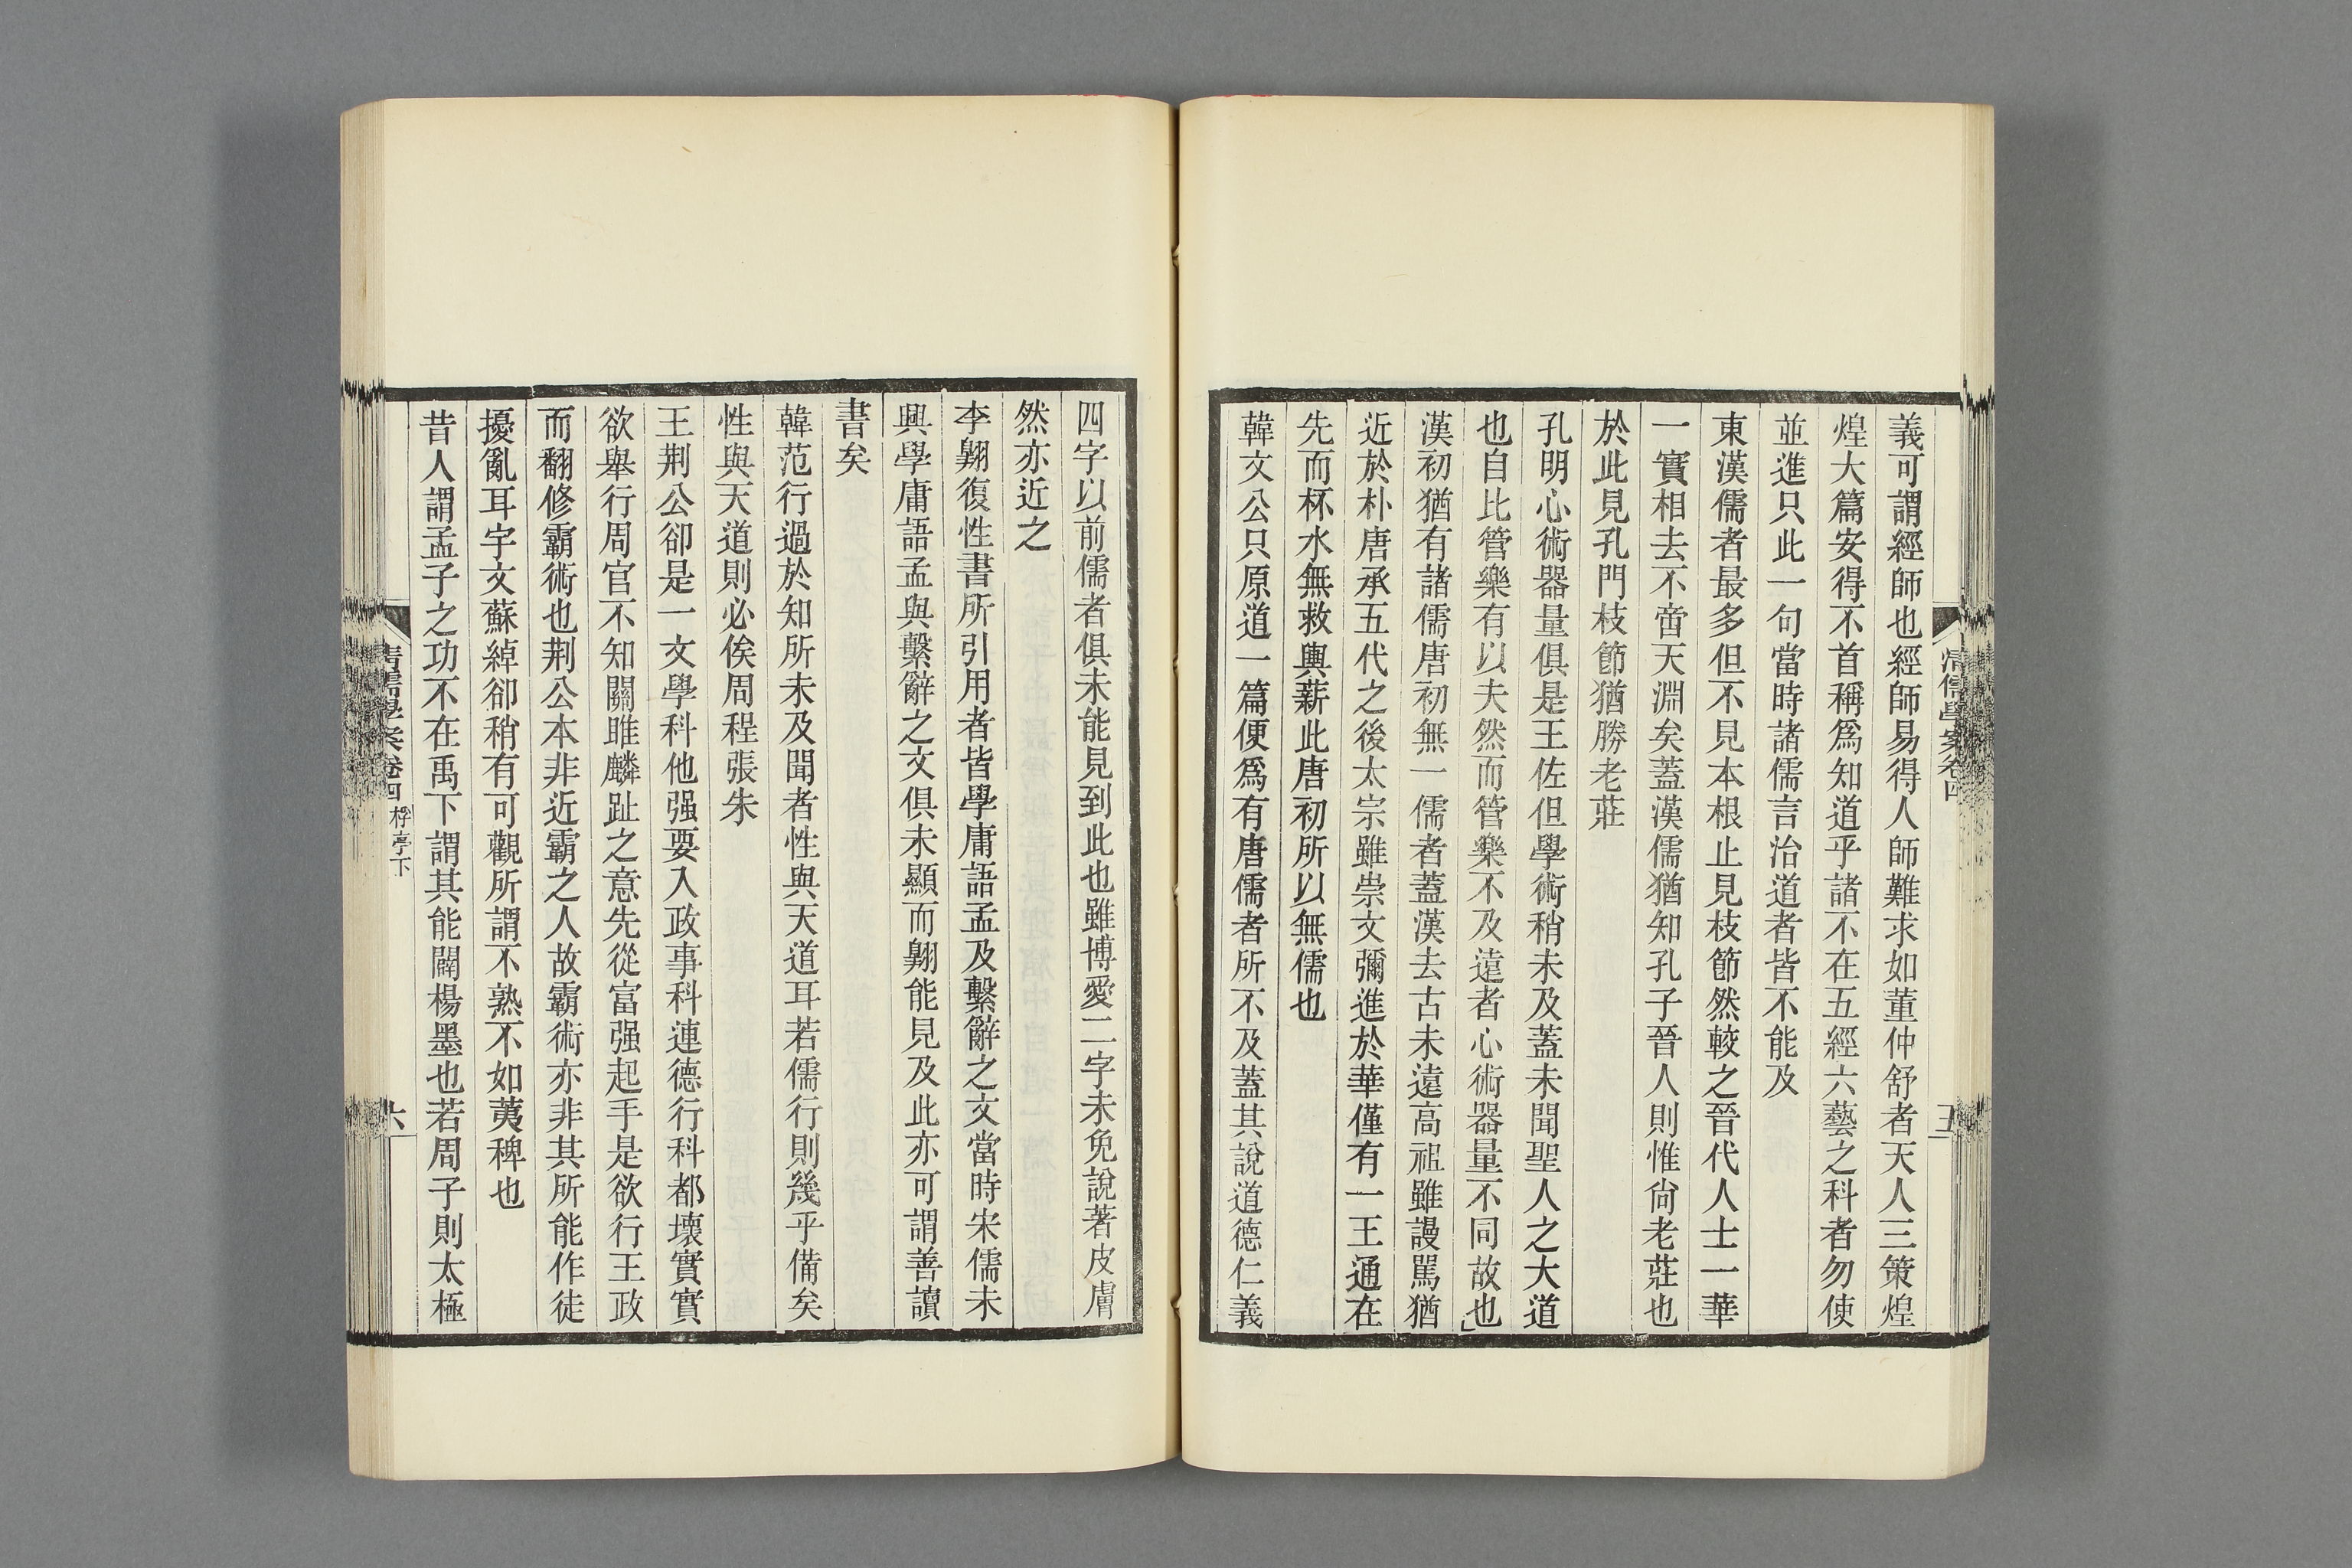 義可謂經師也經師易得人師難求如董仲舒者天人三策煌
煌大篇安得不首稱爲知道乎諸不在五經六藝之科者勿使
並進只此一句當時諸儒言治道者皆不能及
東漢儒者最多但不見本根止見枝節然較之晉代人士一華
一實相去不啻天淵矣蓋漢儒猶知孔子晉人則惟尙老莊也
於此見孔門枝節猶勝老莊
孔明心術器量俱是王佐但學術稍未及蓋未聞聖人之大道
也自比管樂有以夫然而管樂不及遠者心術器量不同故也
漢初猶有諸儒唐初無一儒者蓋漢去古未遠高祖雖謾罵猶
近於朴唐承五代之後太宗雖崇文彌進於華僅有一王通在
先而杯水無救輿薪此唐初所以無儒也
韓文公只原道一篇便爲有唐儒者所不及蓋其說道德仁義
清儒學案卷四
五
四字以前儒者俱未能見到此也雖博愛二字未免說著皮膚
然亦近之
李翺復性書所引用者皆學庸語孟及繫辭之文當時宋儒未
興學庸語孟與繫辭之文俱未顯而翺能見及此亦可謂善讀
書矣
韓范行過於知所未及聞者性與天道耳若儒行則幾乎備矣
性與天道則必俟周程張朱
王荆公卻是一文學科他强要入政事科連德行科都壞實實
欲舉行周官不知關雎麟趾之意先從富强起手是欲行王政
而翻修霸術也荆公本非近霸之人故霸術亦非其所能作徒
擾亂耳宇文蘇綽卻稍有可觀所謂不熟不如荑稗也
昔人謂孟子之功不在禹下謂其能闢楊墨也若周子則太極
清儒學案卷四 桴亭下
六